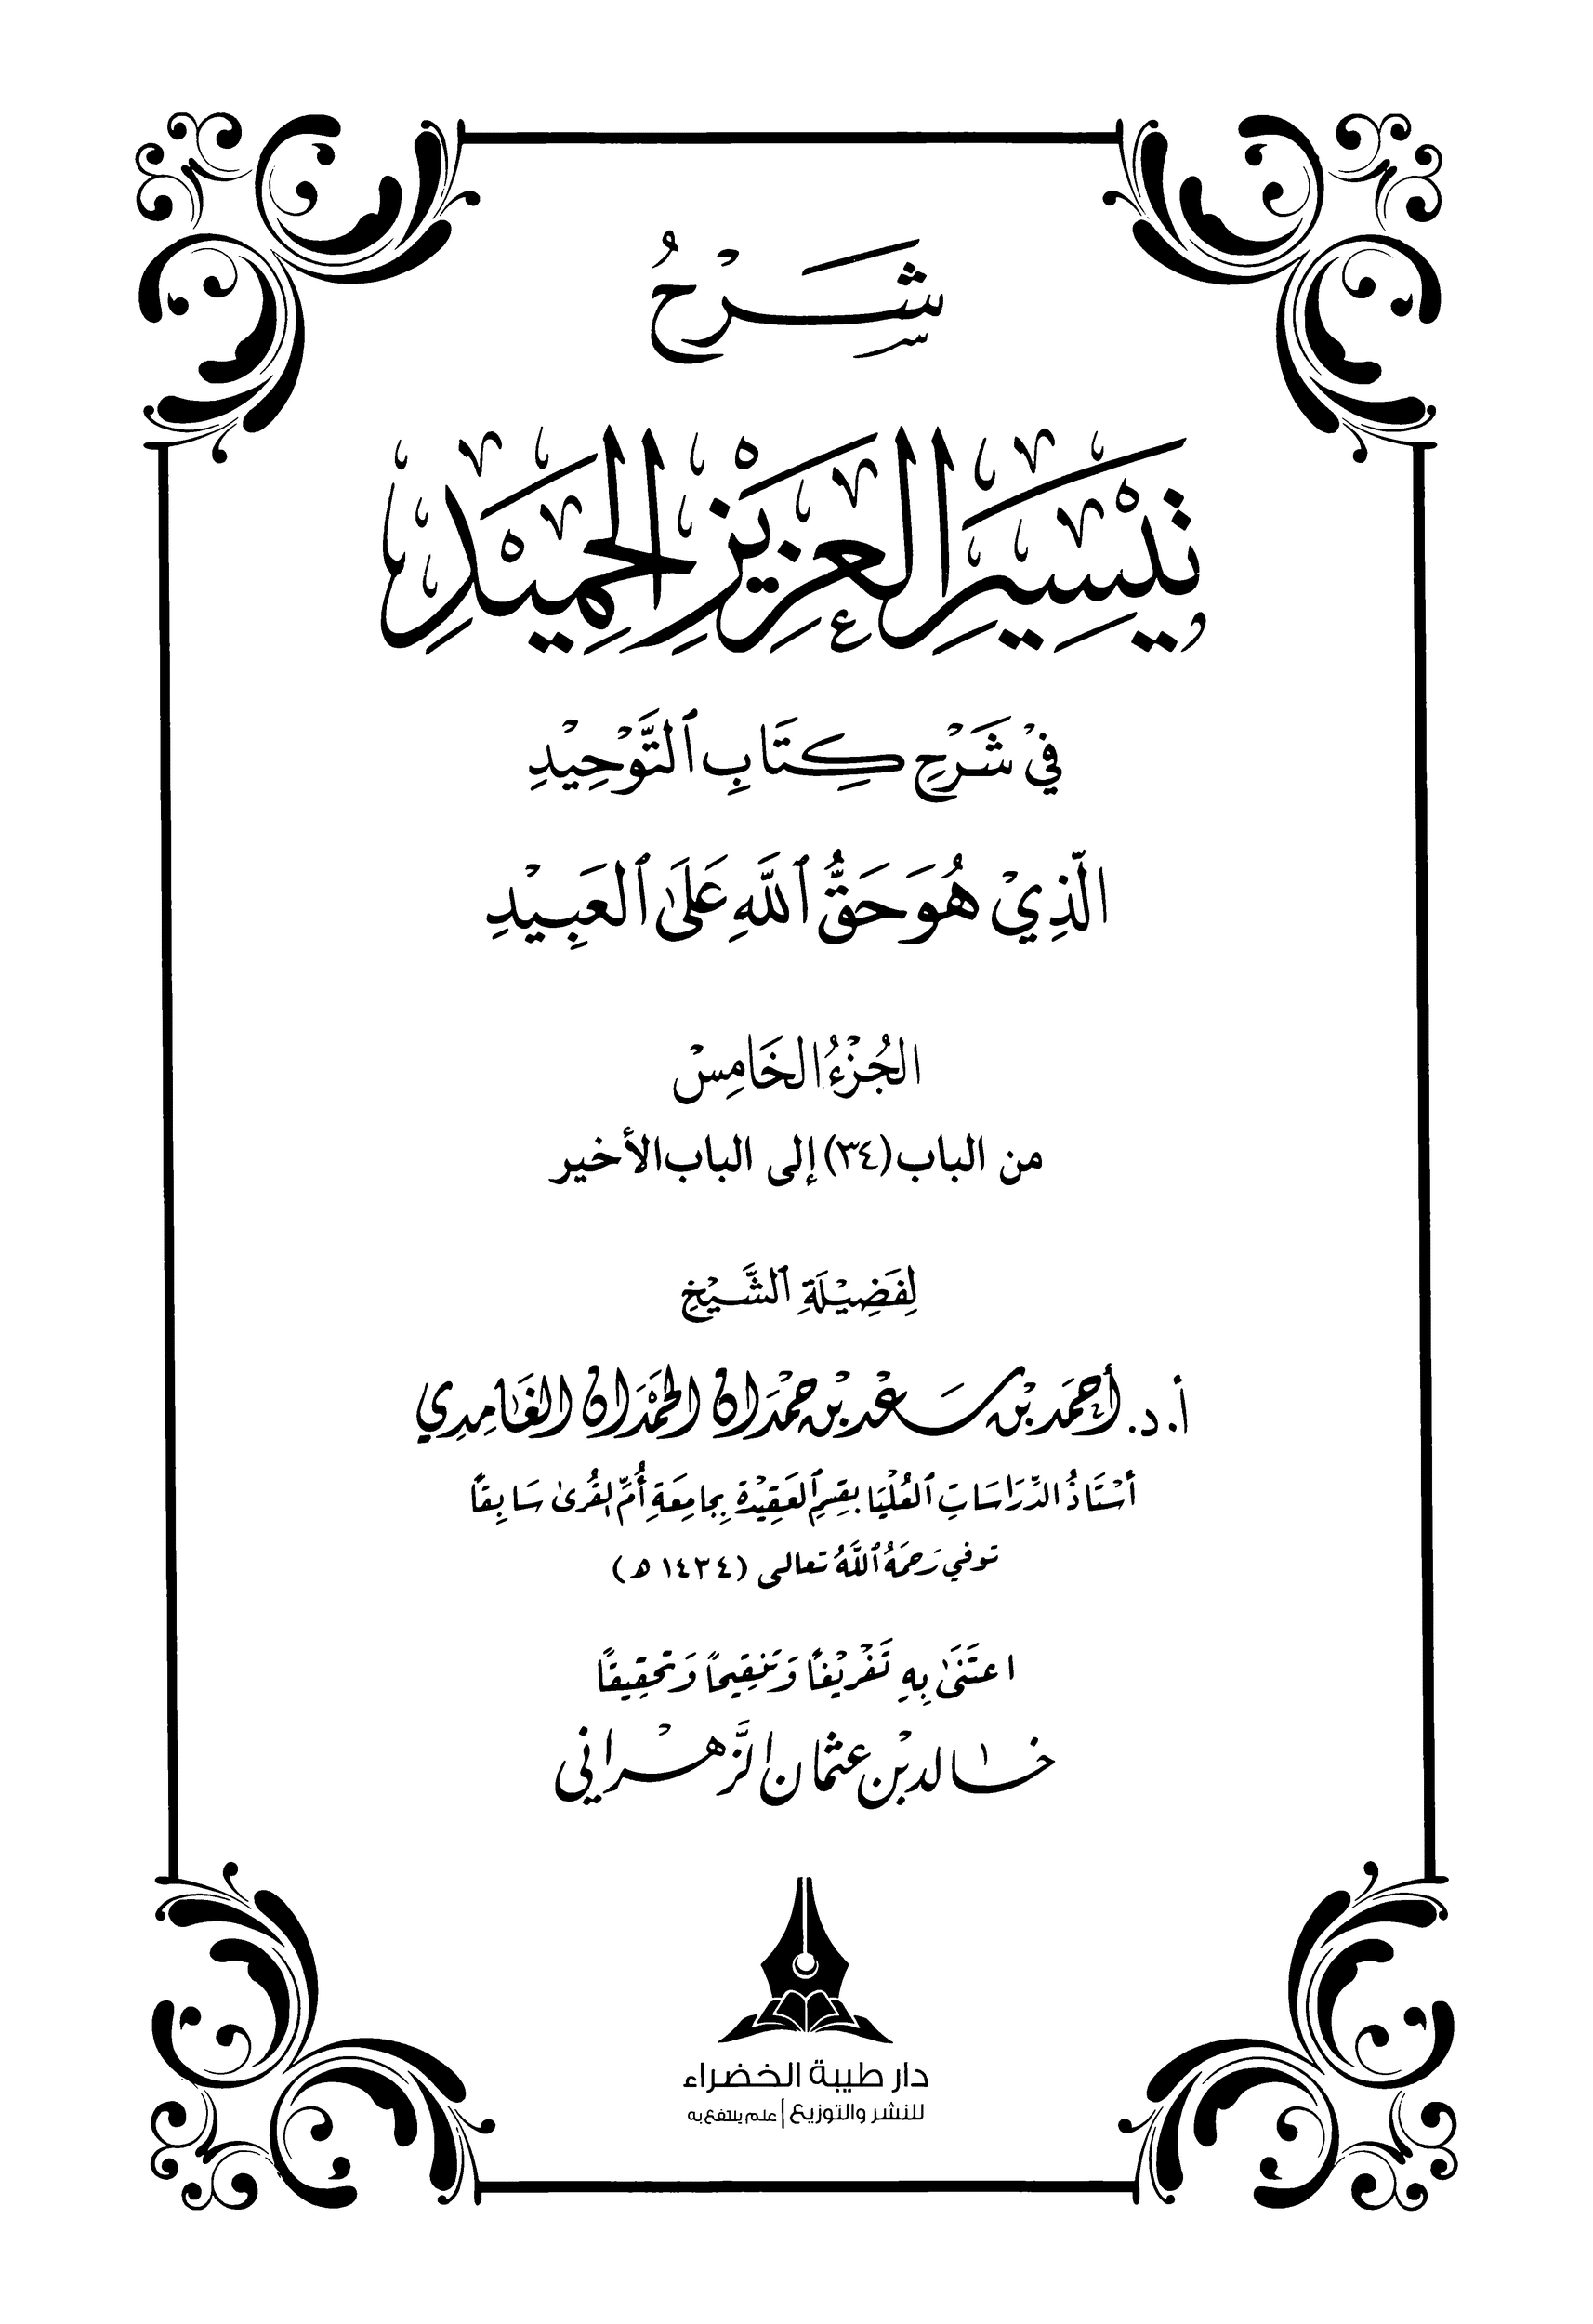 شَرْحُ
تَيْسِيرِ الْعَزِيزِ الْحَمِيدِ
فِيْ شَرْحِ كِتَابِ ٱلتَّوْحِيْدِ
الَّذِيْ هُوَ حَقُّ ٱللَّهِ عَلَى ٱلعَبِيْدِ
الجُزْءُ الخَامِسْ
من الباب (٣٤) إلى الباب الأخير
لِفَضِيْلَةِ ٱلشَّيْخِ
أ. د. أحْمَد بْن سَعْد بْن حمْدَان الحَمْدَان الغَامِدِي
أسْتَاذُ الدِّرَاسَاتِ ٱلعُلْيَا بِقِسْمِ ٱلعَقِيْدَة بِجَامِعَةِ أُمِّ القُرىٰ سَابِقاً
توفي رَحمَهُ ٱللَّهُ تعالى (١٤٣٤ هـ)
اعتَنَىٰ بِهِ تَفْرِيْغاً وَتَنْقِيحاً وَتحقِيقاً
خالد بْن عثمان الزَّهْراني
دار طيبة الخضراء
للنشر والتوزيع | علم ينتفع به